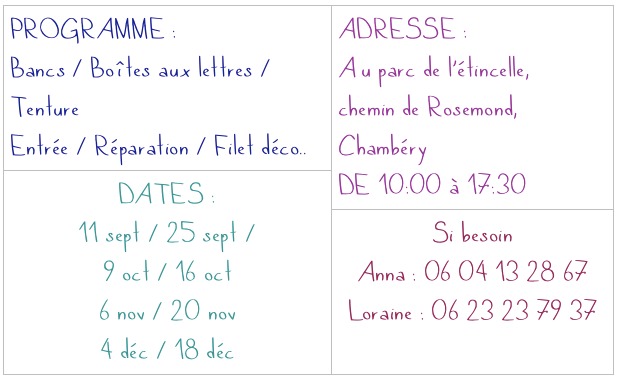 PROGRAMME :
Bancs / Boîtes aux lettres /
Tenture
Entrée / Réparation / Filet déco..
DATES :
11 sept / 25 sept /
9 oct / 16 oct
6 nov / 20 nov
4 déc / 18 déc
ADRESSE :
Au parc de l'étincelle,
chemin de Rosemond,
Chambéry
DE 10:00 à 17:30
Si besoin
Anna : 06 04 13 28 67
Loraine : 06 23 23 79 37